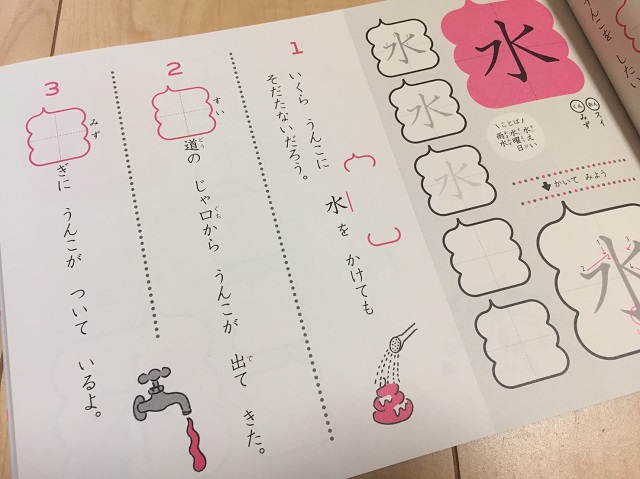 うんこを したい
水
おん スイ
くん みず
ことば
水えい
水曜日
雨水
かいて みよう
水
水
水
水
1
いくら うんこに
水を かけても
そだたないだろう。
2
すい
道の じゃ口から うんこが 出て きた。
どう
ぐち
で
3
みず
ぎに うんこが ついて いるよ。